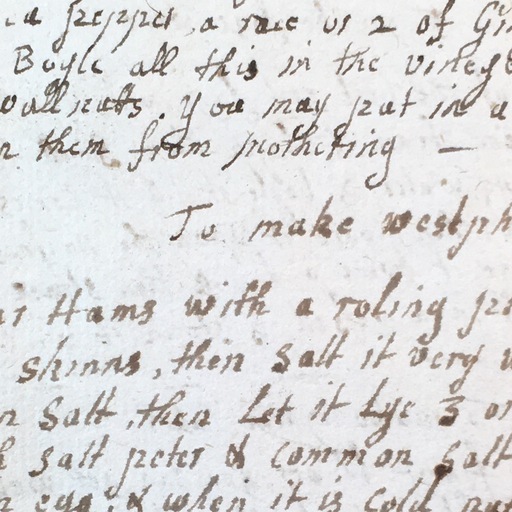 pepper, a race or 2 of Gin
Boyle all this in the vineg
wallnutts. you may put in a
n them from mothering —
To make westph
Hams with a roling pi
skinns, then salt it very w
n salt, then Let it Lye 3 or
salt peter & common salt
egg, & when it is cold